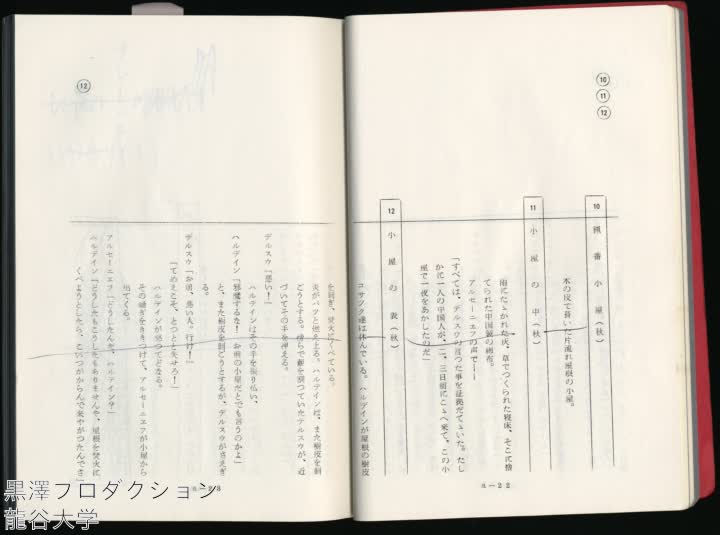 ⑩
⑪
⑫
10 猟番小屋（秋）
木の皮で葺いた片流れ屋根の小屋。
11 小屋の中（秋）
雨にたゝかれた床、草でつくられた寝床、そこに捨
てられた中国服の綿布。
アルセーニエフの声で――
「すべては、デルスウの言つた事を証拠だてゝいた。たし
かに一人の中国人が、二、三日前にこゝへ来て、この小
屋で一夜をあかしたのだ」
12 小屋の表（秋）
コサツク達は休んでいる。ハルデインが屋根の樹皮
a－22
⑫
を剝ぎ、焚火にくべている。
炎がパツと燃え上る。ハルデインは、また樹皮を剝
ごうとする。傍らで薪を割つていたデルスウが、近
づいてその手を押える。
デルスウ「悪い！」
ハルデインはその手を振り払い、
ハルデイン「邪魔するな！　お前の小屋だとでも言うのかよ」
と、また樹皮を剝ごうとするが、デルスウがさえぎ
る。
デルスウ「お前、悪い人。行け！」
「てめえこそ、とつとと失せろ！」
ハルデインが怒つてどなる。
その騒ぎをききつけて、アルセーニエフが小屋から
出てくる。
アルセーニエフ「どうしたんだ、ハルデイン？」
ハルデイン「どうしたもこうしたもありませんや、屋根を焚火に
くべようとしたら、こいつがからんで来やがつたんでさ」
a－23
黒澤プロダクション
龍谷大学